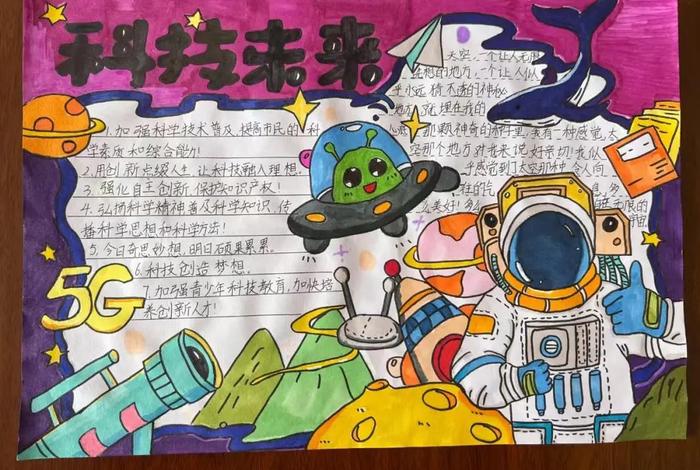 科技未来
1.加强科学技术普及,提高市民的科
学素质和综合能力!
2.用创新点缀人生,让科技融入理想.
3.强化自主创新,保护知识产权!
4.弘扬科学精神普及科学知识、传
播科学思想和科学方法!
5.今日奇思妙想,明日硕果累累。
6.科技创造梦想.
7.加强青少年科技教育,加快培
养创新人才!
5G
太空,一个让人无限
遐想的地方,一个让人似
乎永远猜不透的神秘
地方,就埋在我的
那颗神奇的种子里,我有一种感觉,太
空那个地方对我来说好亲切!我似
乎感觉到了太空那种令人向
往的气
么美好!多么
无限的
宇宙